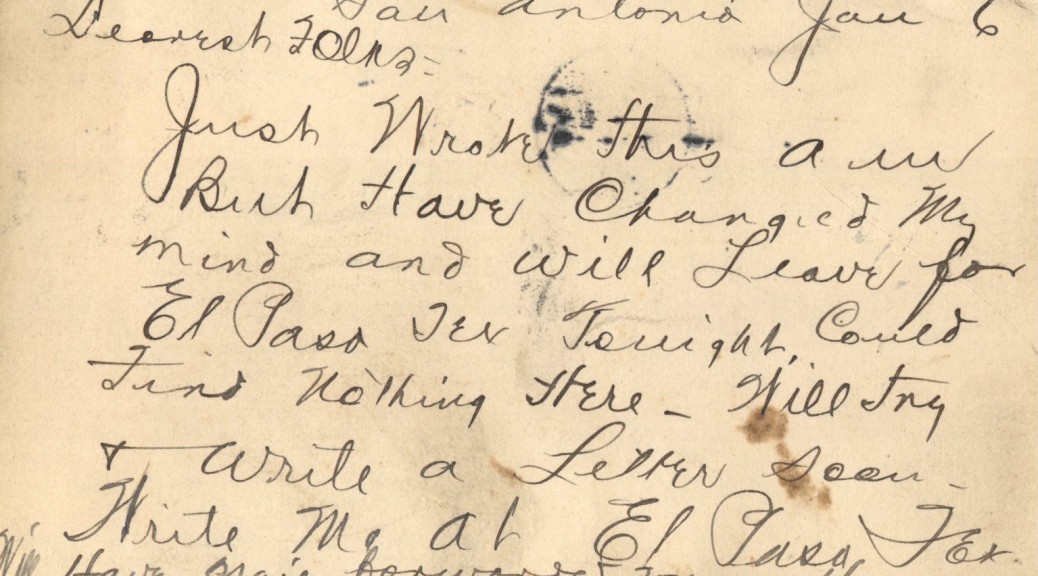 San Antonio Jan 6
Dearest Folks=
Just Wrote this a m
But Have Changed My
mind and will Leave for
El Paso Tex Tonight, Could
Find Nothing Here - Will Try
+ Write a Letter soon -
Write Me At El Paso, Tex.
Will Have mail forwarded